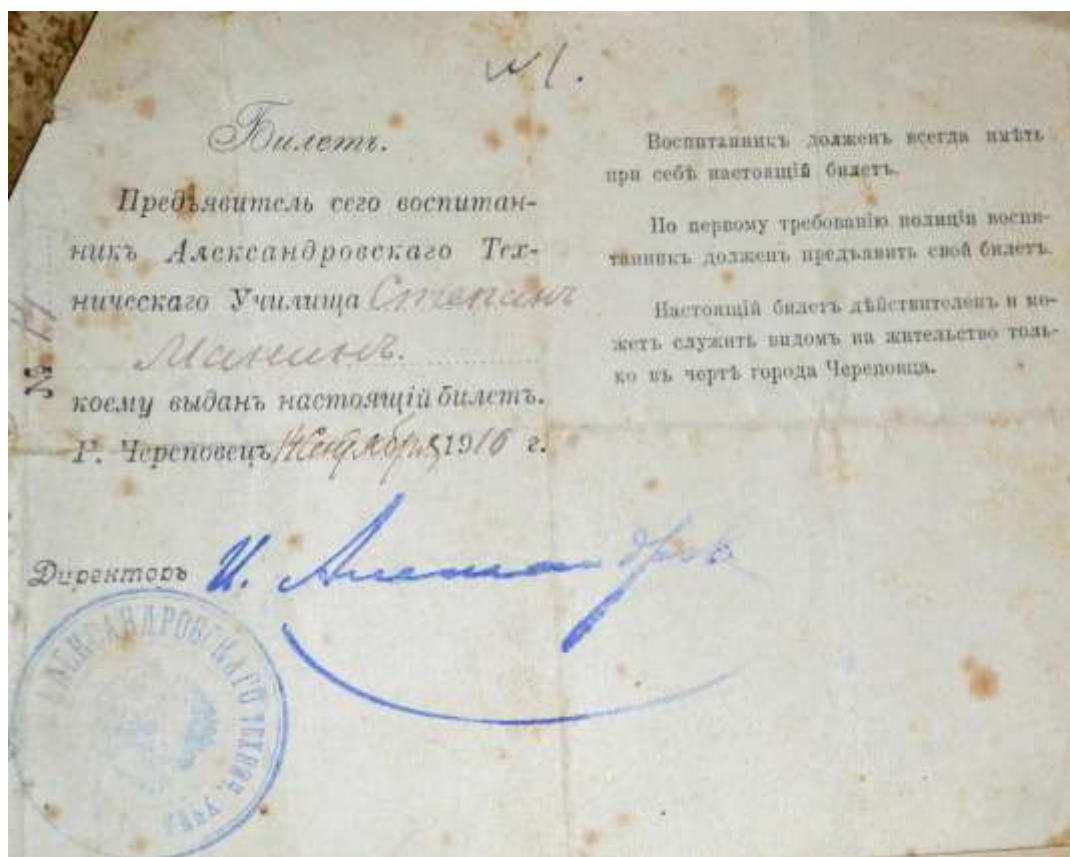 № 1.
Билетъ.
Предъявитель сего воспитан-
никъ Александровскаго Тех-
ническаго Училища Степанъ
Манинъ.
коему выданъ настоящій билетъ.
Г. Череповецъ, Сентября 1916 г.
№
Директоръ И.
АЛЕКСАНДРОВСКАГО ТЕХНИЧ. УЧИЛ
Воспитанникъ долженъ всегда имѣть
при себѣ настоящій билетъ.
По первому требованію полиціи воспи-
танникъ долженъ предъявить свой билетъ.
Настоящій билетъ дѣйствителенъ и мо-
жетъ служить видомъ на жительство толь-
ко въ чертѣ города Череповца.